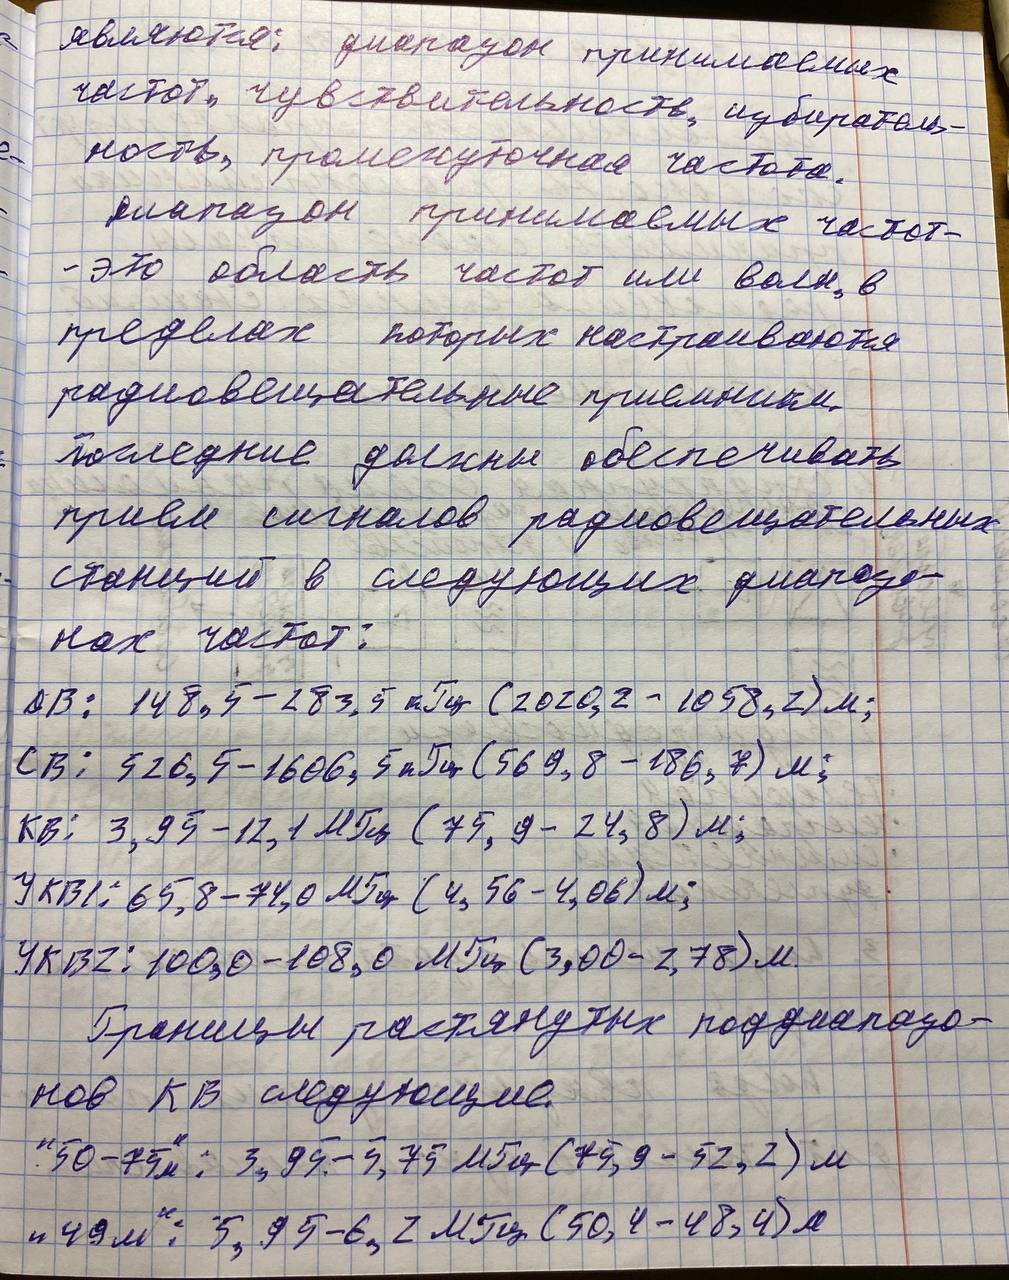 являются: диапазон принимаемых
частот, чувствительность, избиратель-
ность, промежуточная частота.
Диапазон принимаемых частот-
-это область частот или волн, в
пределах которых настраиваются
радиовещательные приемники.
Последние должны обеспечивать
прием сигналов радиовещательных
станций в следующих диапазо-
нах частот:
ДВ: 148,5-283,5 кГц (2020,2-1058,2) м;
СВ: 526,5-1606,5 кГц (569,8-186,7) м;
КВ: 3,95-12,1 МГц (75,9-24,8) м;
УКВ1: 65,8-74,0 МГц (4,56-4,06) м;
УКВ2: 100,0-108,0 МГц (3,00-2,78) м.
Границы растянутых поддиапазо-
нов КВ следующие.
"50-75м": 3,95-5,75 МГц (75,9-52,2) м
"49м": 5,95-6,2 МГц (50,4-48,4) м